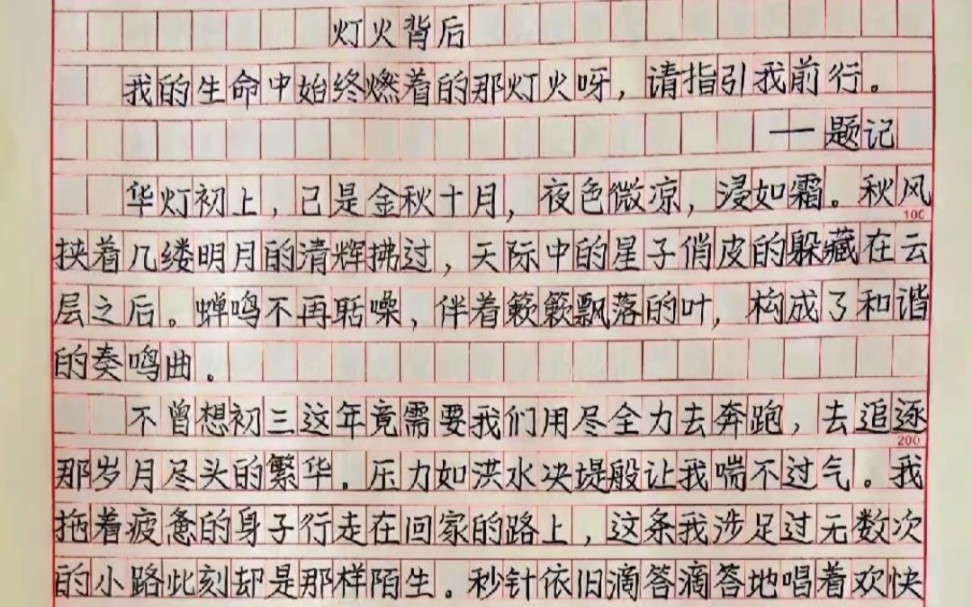 灯火背后
我的生命中始终燃着的那灯火呀，请指引我前行。
——题记
华灯初上，己是金秋十月，夜色微凉，浸如霜。秋风
100
挟着几缕明月的清辉拂过，天际中的星子俏皮的躲藏在云
层之后。蝉鸣不再聒噪，伴着簌簌飘落的叶，构成了和谐
的奏鸣曲。
不曾想初三这年竟需要我们用尽全力去奔跑，去追逐
200
那岁月尽头的繁华．压力如洪水决堤般让我喘不过气。我
拖着疲惫的身子行走在回家的路上，这条我涉足过无数次
的小路此刻却是那样陌生。秒针依旧滴答滴答地唱着欢快